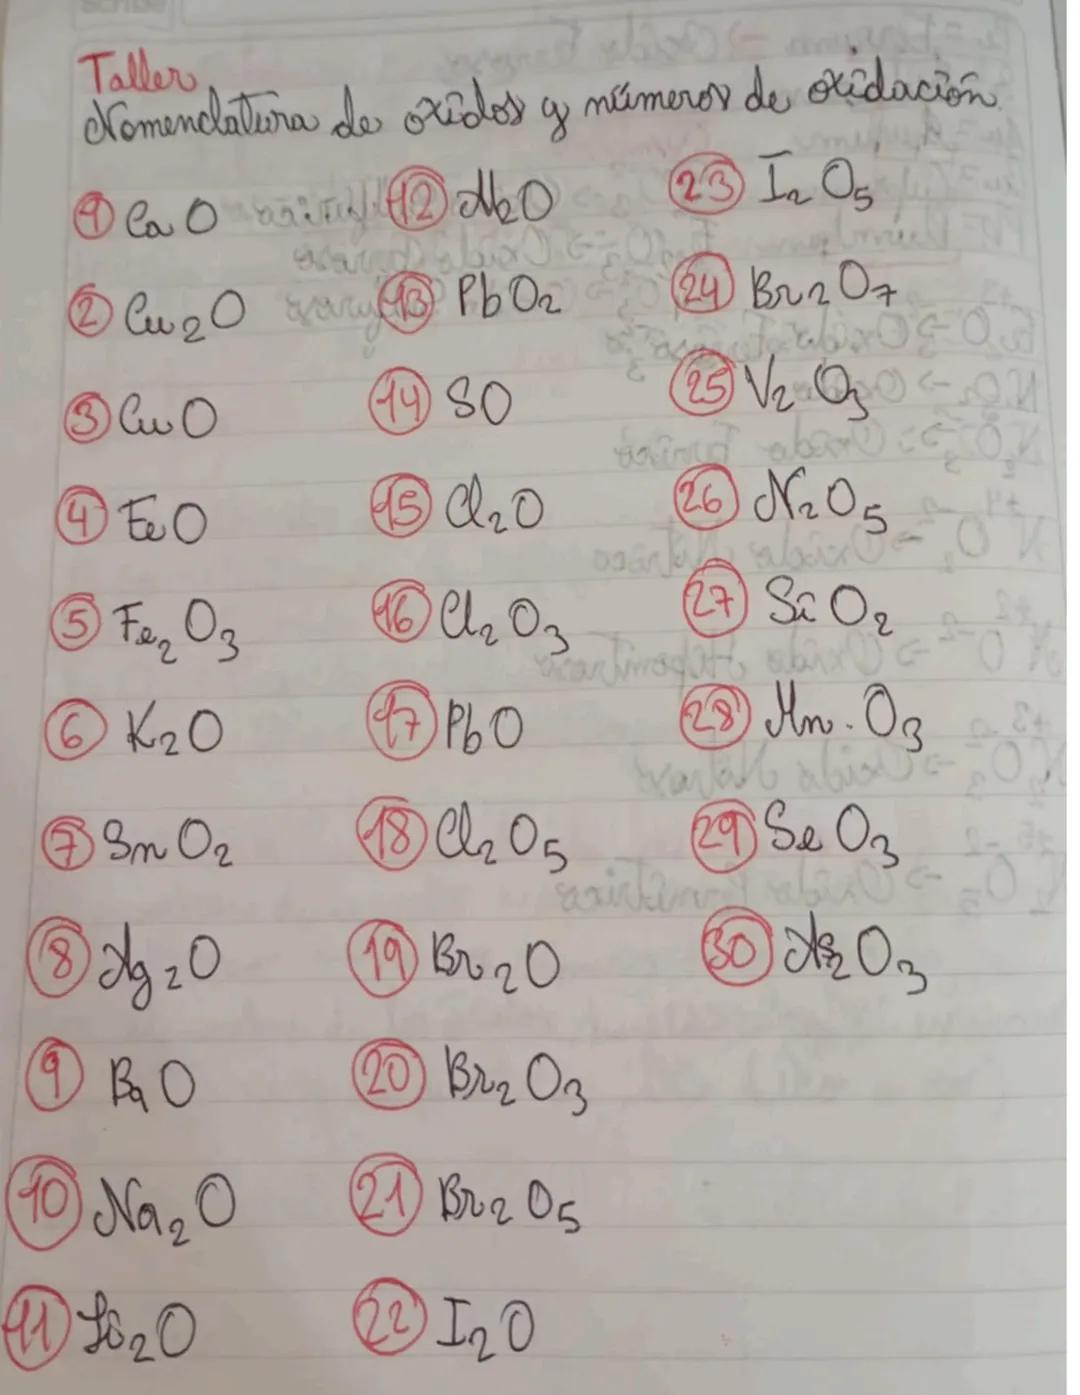 Taller
Nomenclatura de oxidos y números de oxidación.
1 CaO
2 Cu2O
3 CuO
4 FeO
5 Fe2O3
6 K2O
7 SnO2
8 Ag2O
9 BaO
10 Na2O
11 Li2O
12 N2O
13 PbO2
14 SO
15 Cl2O
16 Cl2O3
17 PbO
18 Cl2O5
19 Br2O
20 Br2O3
21 Br2O5
22 I2O
23 I2O5
24 Br2O7
25 V2O3
26 N2O5
27 SiO2
28 Mn.O3
29 SeO3
30 As2O3